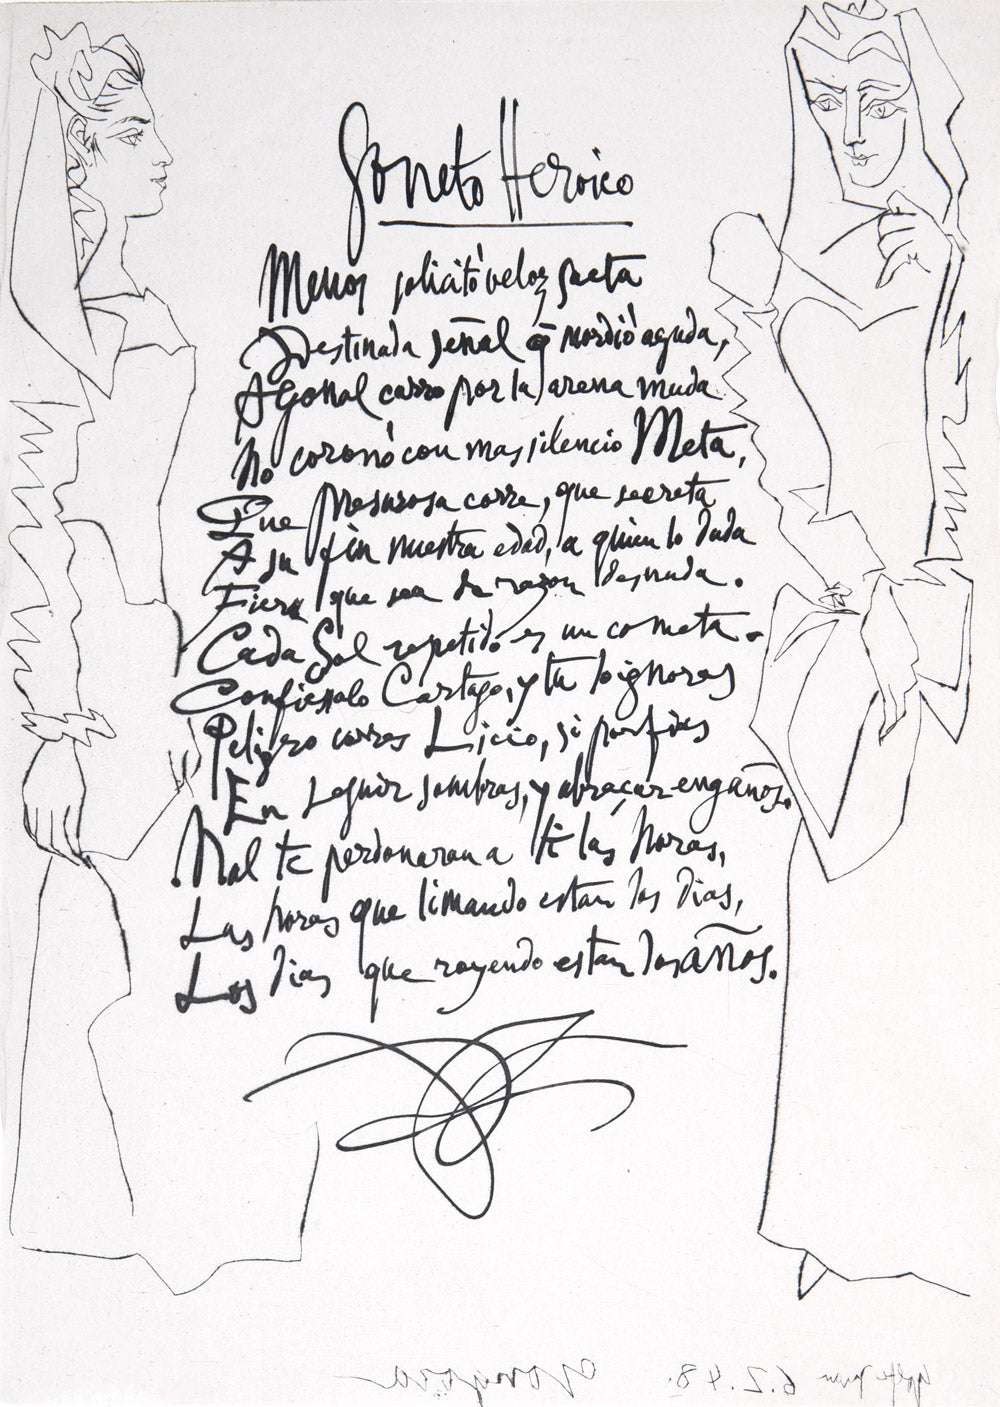 Soneto Heroico
Menos solicitó veloz saeta
Destinada señal q̄ mordió aguda,
Agonal carro por la arena muda
No coronó con mas silencio Meta,
Que presurosa corre, que secreta
A su fin nuestra edad, a quien lo duda
Fiera que sea de razon desnuda.
Cada Sol repetido es un cometa.
Confiesalo Cartago, y tu lo ignoras
Peligro corres Licio, si porfias
En seguir sombras, y abraçar engaños.
Mal te perdonaran a ti las horas,
Las horas que limando estan los dias,
Los dias que royendo estan los años.
Gongora
Golfe Juan 6.2.48.